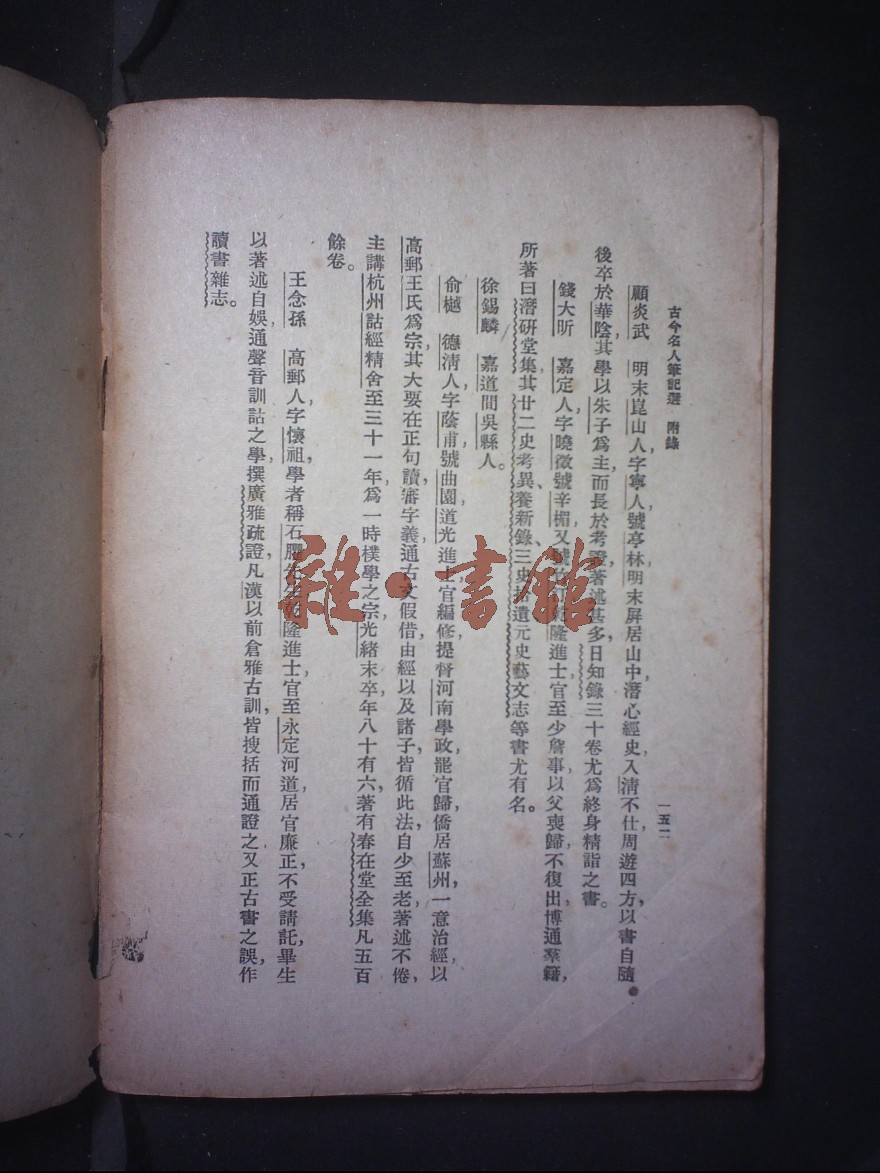 古今名人筆記選　附錄
一五二
顧炎武　明末崑山人，字寧人，號亭林，明末屏居山中，潛心經史，入清不仕，周遊四方，以書自隨，
後卒於華陰，其學以朱子爲主，而長於考證，著述甚多，日知錄三十卷，尤爲終身精詣之書。
錢大昕　嘉定人，字曉徵，號辛楣，又號　乾隆進士，官至少詹事，以父喪歸，不復出，博通羣籍，
所著曰潛研堂集，其廿二史考異、養新錄、三史拾遺元史藝文志等書尤有名。
徐錫麟　嘉道間吳縣人。
俞樾　德清人，字蔭甫，號曲園，道光進士，官編修，提督河南學政，罷官歸，僑居蘇州，一意治經，以
高郵王氏爲宗，其大要在正句讀，審字義，通古文假借，由經以及諸子，皆循此法，自少至老，著述不倦，
主講杭州詁經精舍至三十一年，爲一時樸學之宗，光緒末卒，年八十有六，著有春在堂全集，凡五百
餘卷。
王念孫　高郵人，字懷祖，學者稱石臞先生，乾隆進士，官至永定河道，居官廉正，不受請託，畢生
以著述自娛，通聲音訓詁之學，撰廣雅疏證，凡漢以前倉雅古訓，皆搜括而通證之，又正古書之誤，作
讀書雜志。
雜·書館